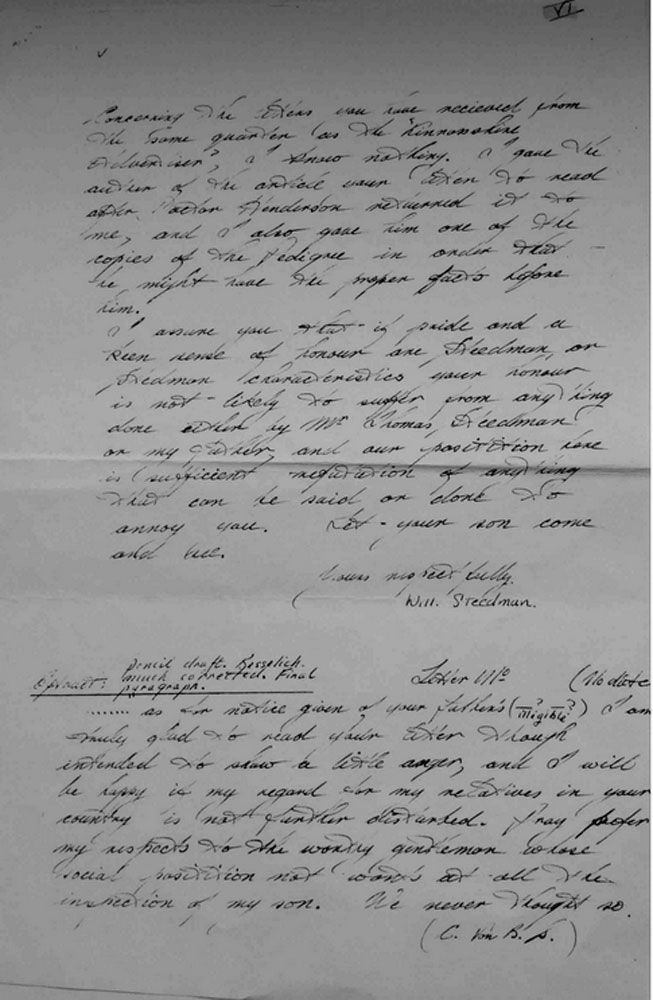 VI
Concerning the letters you have recieved from
the same quarter (as the "Kinrosshire
Advertiser", I know nothing. I gave the
author of the article your letter to read
after Doctor Henderson returned it to
me, and I also gave him one of the
copies of the Pedigree in order that
he might have the proper facts before
him.
I assure you that if pride and a
keen sense of honour are Steedman, or
Stedman characteristics your honour
is not likely to suffer from anything
done either by Mr Thomas Steedman
or my father, and our position here
is sufficient refutation of anything
that can be said or done to
annoy you. Let your son come
and see.
Yours respectfully.
Will. Steedman.
Extract: pencil draft. Kesselich. Letter III (No date
much corrected. Final
paragraph.
....... as for notice given of your father's (? illigible ?) I am
truly glad to read your letter though
intended to show a little anger, and I will
be happy if my regard for my relatives in your
country is not further disturbed. Pray
my respects to the worthy gentleman whose
social position not wants at all the
inspection of my son. We never thought so.
(C. von B. S.)